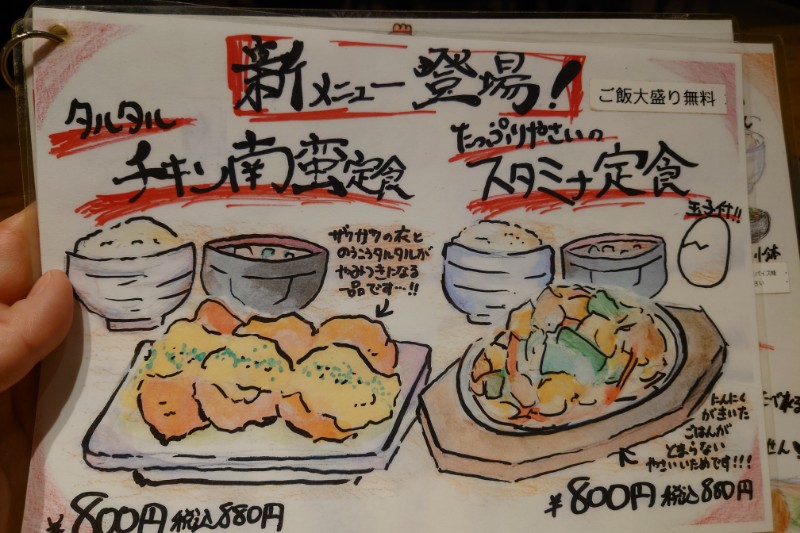 新メニュー登場!
ご飯大盛り無料
タルタル
チキン南蛮定食
たっぷりやさいの
スタミナ定食
玉子付!!
ザクザクの衣と
のうこうタルタルが
やみつきになる
一品です…!!
にんにく
がきいた
ごはんが
とまらない
やさいいためです!!!
¥800円 税込880円
¥800円 税込880円
小鉢